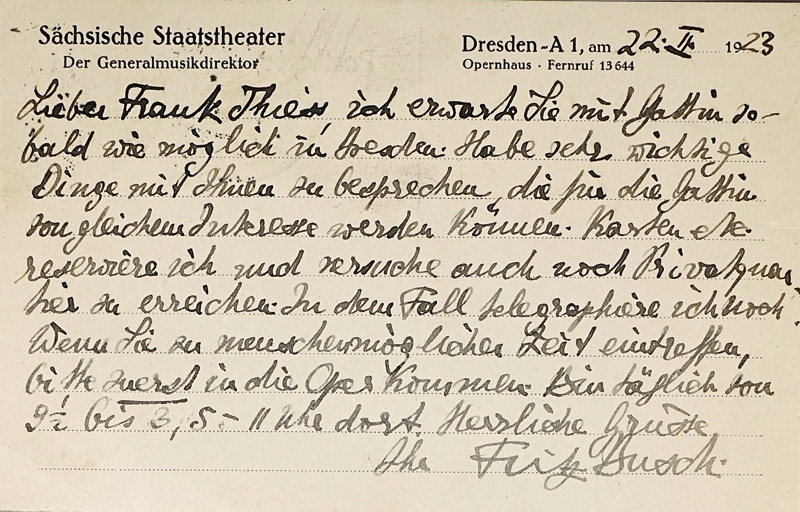 Sächsische Staatstheater
Der Generalmusikdirektor
Dresden-A 1, am 22. II. 1923
Opernhaus · Fernruf 13644
Lieber Frank Thiess, ich erwarte Sie mit Gattin so-
bald wie möglich in Dresden. Habe sehr wichtige
Dinge mit Ihnen zu besprechen, die für die Gattin
von gleichem Interesse werden können. Karten etc.
reserviere ich und versuche auch noch Privatquar-
tier zu erreichen. In dem Fall telegraphiere ich noch.
Wenn Sie zu menschenmöglicher Zeit eintreffen,
bitte zuerst in die Oper kommen. Bin täglich von
9½ bis 3, 5 - 11 Uhr dort. Herzliche Grüsse
Ihr Fritz Busch.